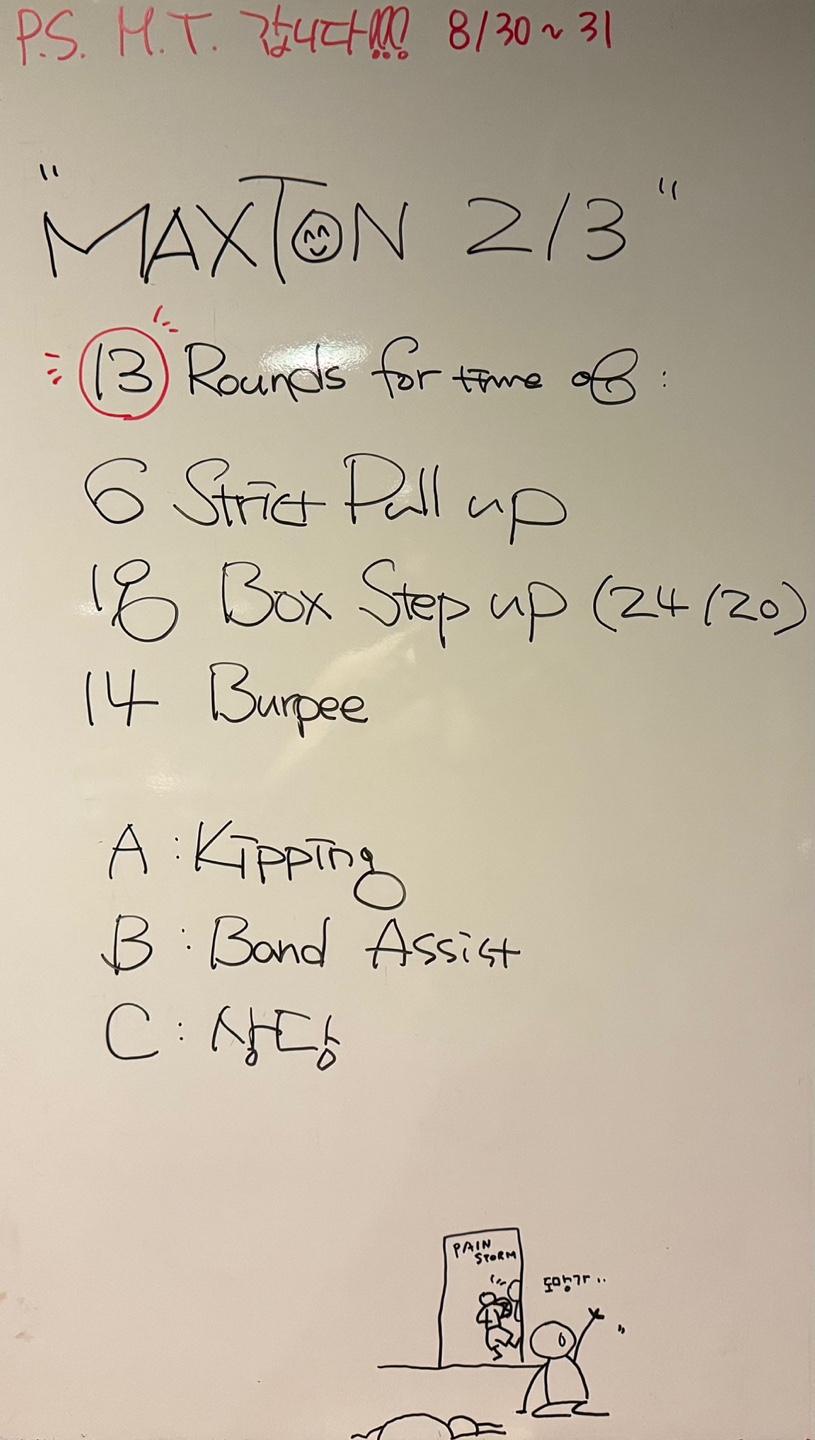 P.S. M.T. 갑니다!!! 8/30 ~ 31
"MAXTON 2/3"
13 Rounds for time of :
6 Strict Pull up
18 Box Step up (24/20)
14 Burpee
A : Kipping
B : Band Assist
C : 상담
PAIN
STORM
도망가..